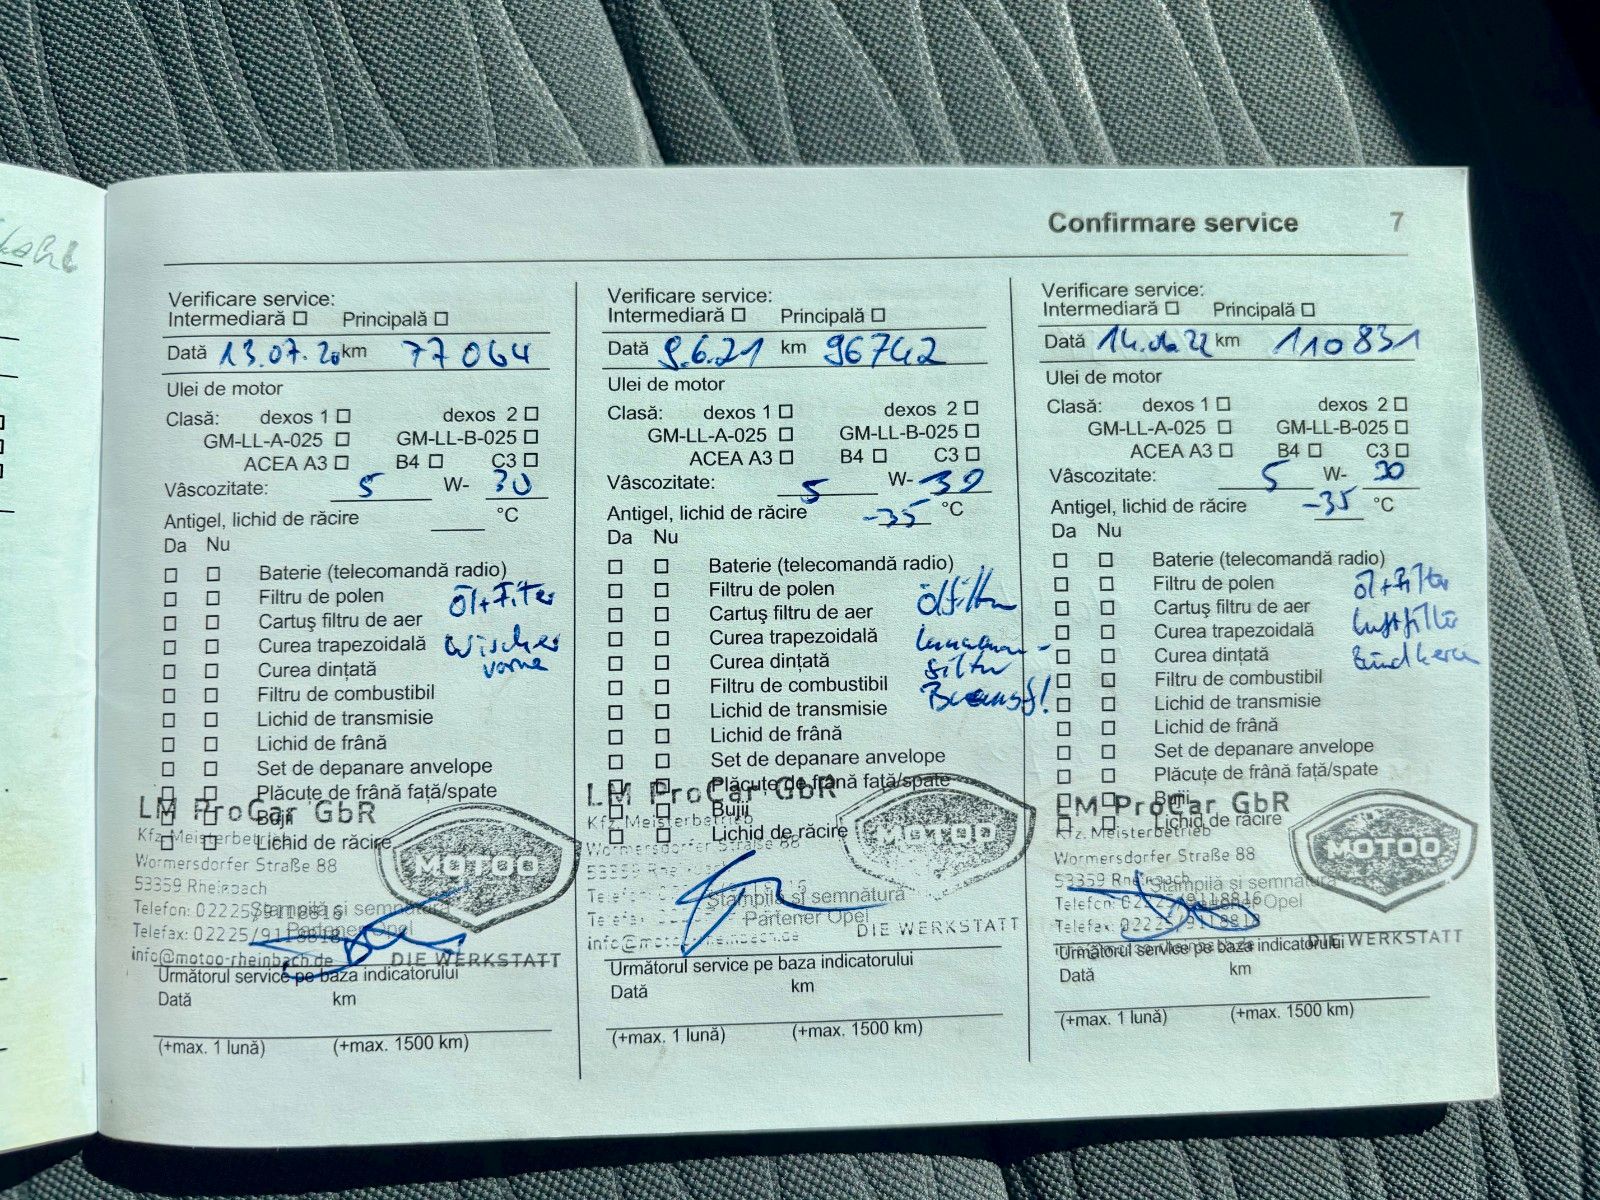 Confirmare service 7
Verificare service:
Intermediară Principală
Dată 13.07.20 km 77064
Ulei de motor
Clasă: dexos 1 dexos 2
GM-LL-A-025 GM-LL-B-025
ACEA A3 B4 C3
Vâscozitate: 5 W- 30
Antigel, lichid de răcire °C
Da Nu
Baterie (telecomandă radio)
Filtru de polen
Öl+Filter
Cartuş filtru de aer
Curea trapezoidală
Wischer
vorne
Curea dinţată
Filtru de combustibil
Lichid de transmisie
Lichid de frână
Set de depanare anvelope
Plăcuţe de frână faţă/spate
Bujii
Lichid de răcire
LM ProCar GbR
Kfz.Meisterbetrieb
Wormersdorfer Straße 88
53359 Rheinbach
Telefon: 02225/9118816
Telefax: 02225/9118818
info@motoo-rheinbach.de
MOTOO
DIE WERKSTATT
Ştampilă şi semnătură
Partener Opel
Următorul service pe baza indicatorului
Dată km
(+max. 1 lună) (+max. 1500 km)
Verificare service:
Intermediară Principală
Dată 9.6.21 km 96742
Ulei de motor
Clasă: dexos 1 dexos 2
GM-LL-A-025 GM-LL-B-025
ACEA A3 B4 C3
Vâscozitate: 5 W- 30
Antigel, lichid de răcire -35 °C
Da Nu
Baterie (telecomandă radio)
Filtru de polen
Ölfilter
Cartuş filtru de aer
Curea trapezoidală
Curea dinţată
filter
Filtru de combustibil
Lichid de transmisie
Lichid de frână
Set de depanare anvelope
Plăcuţe de frână faţă/spate
Bujii
Lichid de răcire
LM ProCar GbR
Kfz.Meisterbetrieb
Wormersdorfer Straße 88
53359
MOTOO
DIE WERKSTATT
Ştampilă şi semnătură
Partener Opel
Următorul service pe baza indicatorului
Dată km
(+max. 1 lună) (+max. 1500 km)
Verificare service:
Intermediară Principală
Dată km 110831
Ulei de motor
Clasă: dexos 1 dexos 2
GM-LL-A-025 GM-LL-B-025
ACEA A3 B4 C3
Vâscozitate: 5 W- 30
Antigel, lichid de răcire -35 °C
Da Nu
Baterie (telecomandă radio)
Filtru de polen
Öl+Filter
Cartuş filtru de aer
Luftfilter
Curea trapezoidală
Curea dinţată
Zündkerzen
Filtru de combustibil
Lichid de transmisie
Lichid de frână
Set de depanare anvelope
Plăcuţe de frână faţă/spate
Bujii
Lichid de răcire
LM ProCar GbR
Kfz.Meisterbetrieb
Wormersdorfer Straße 88
53359 Rheinbach
Telefon: 02225/9118816
Telefax: 02225/9118818
MOTOO
DIE WERKSTATT
Ştampilă şi semnătură
Partener Opel
Următorul service pe baza indicatorului
Dată km
(+max. 1 lună) (+max. 1500 km)